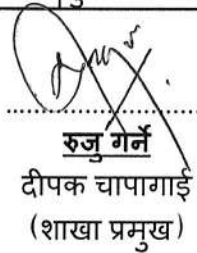 रुजु गर्ने
दीपक चापागाई
(शाखा प्रमुख)